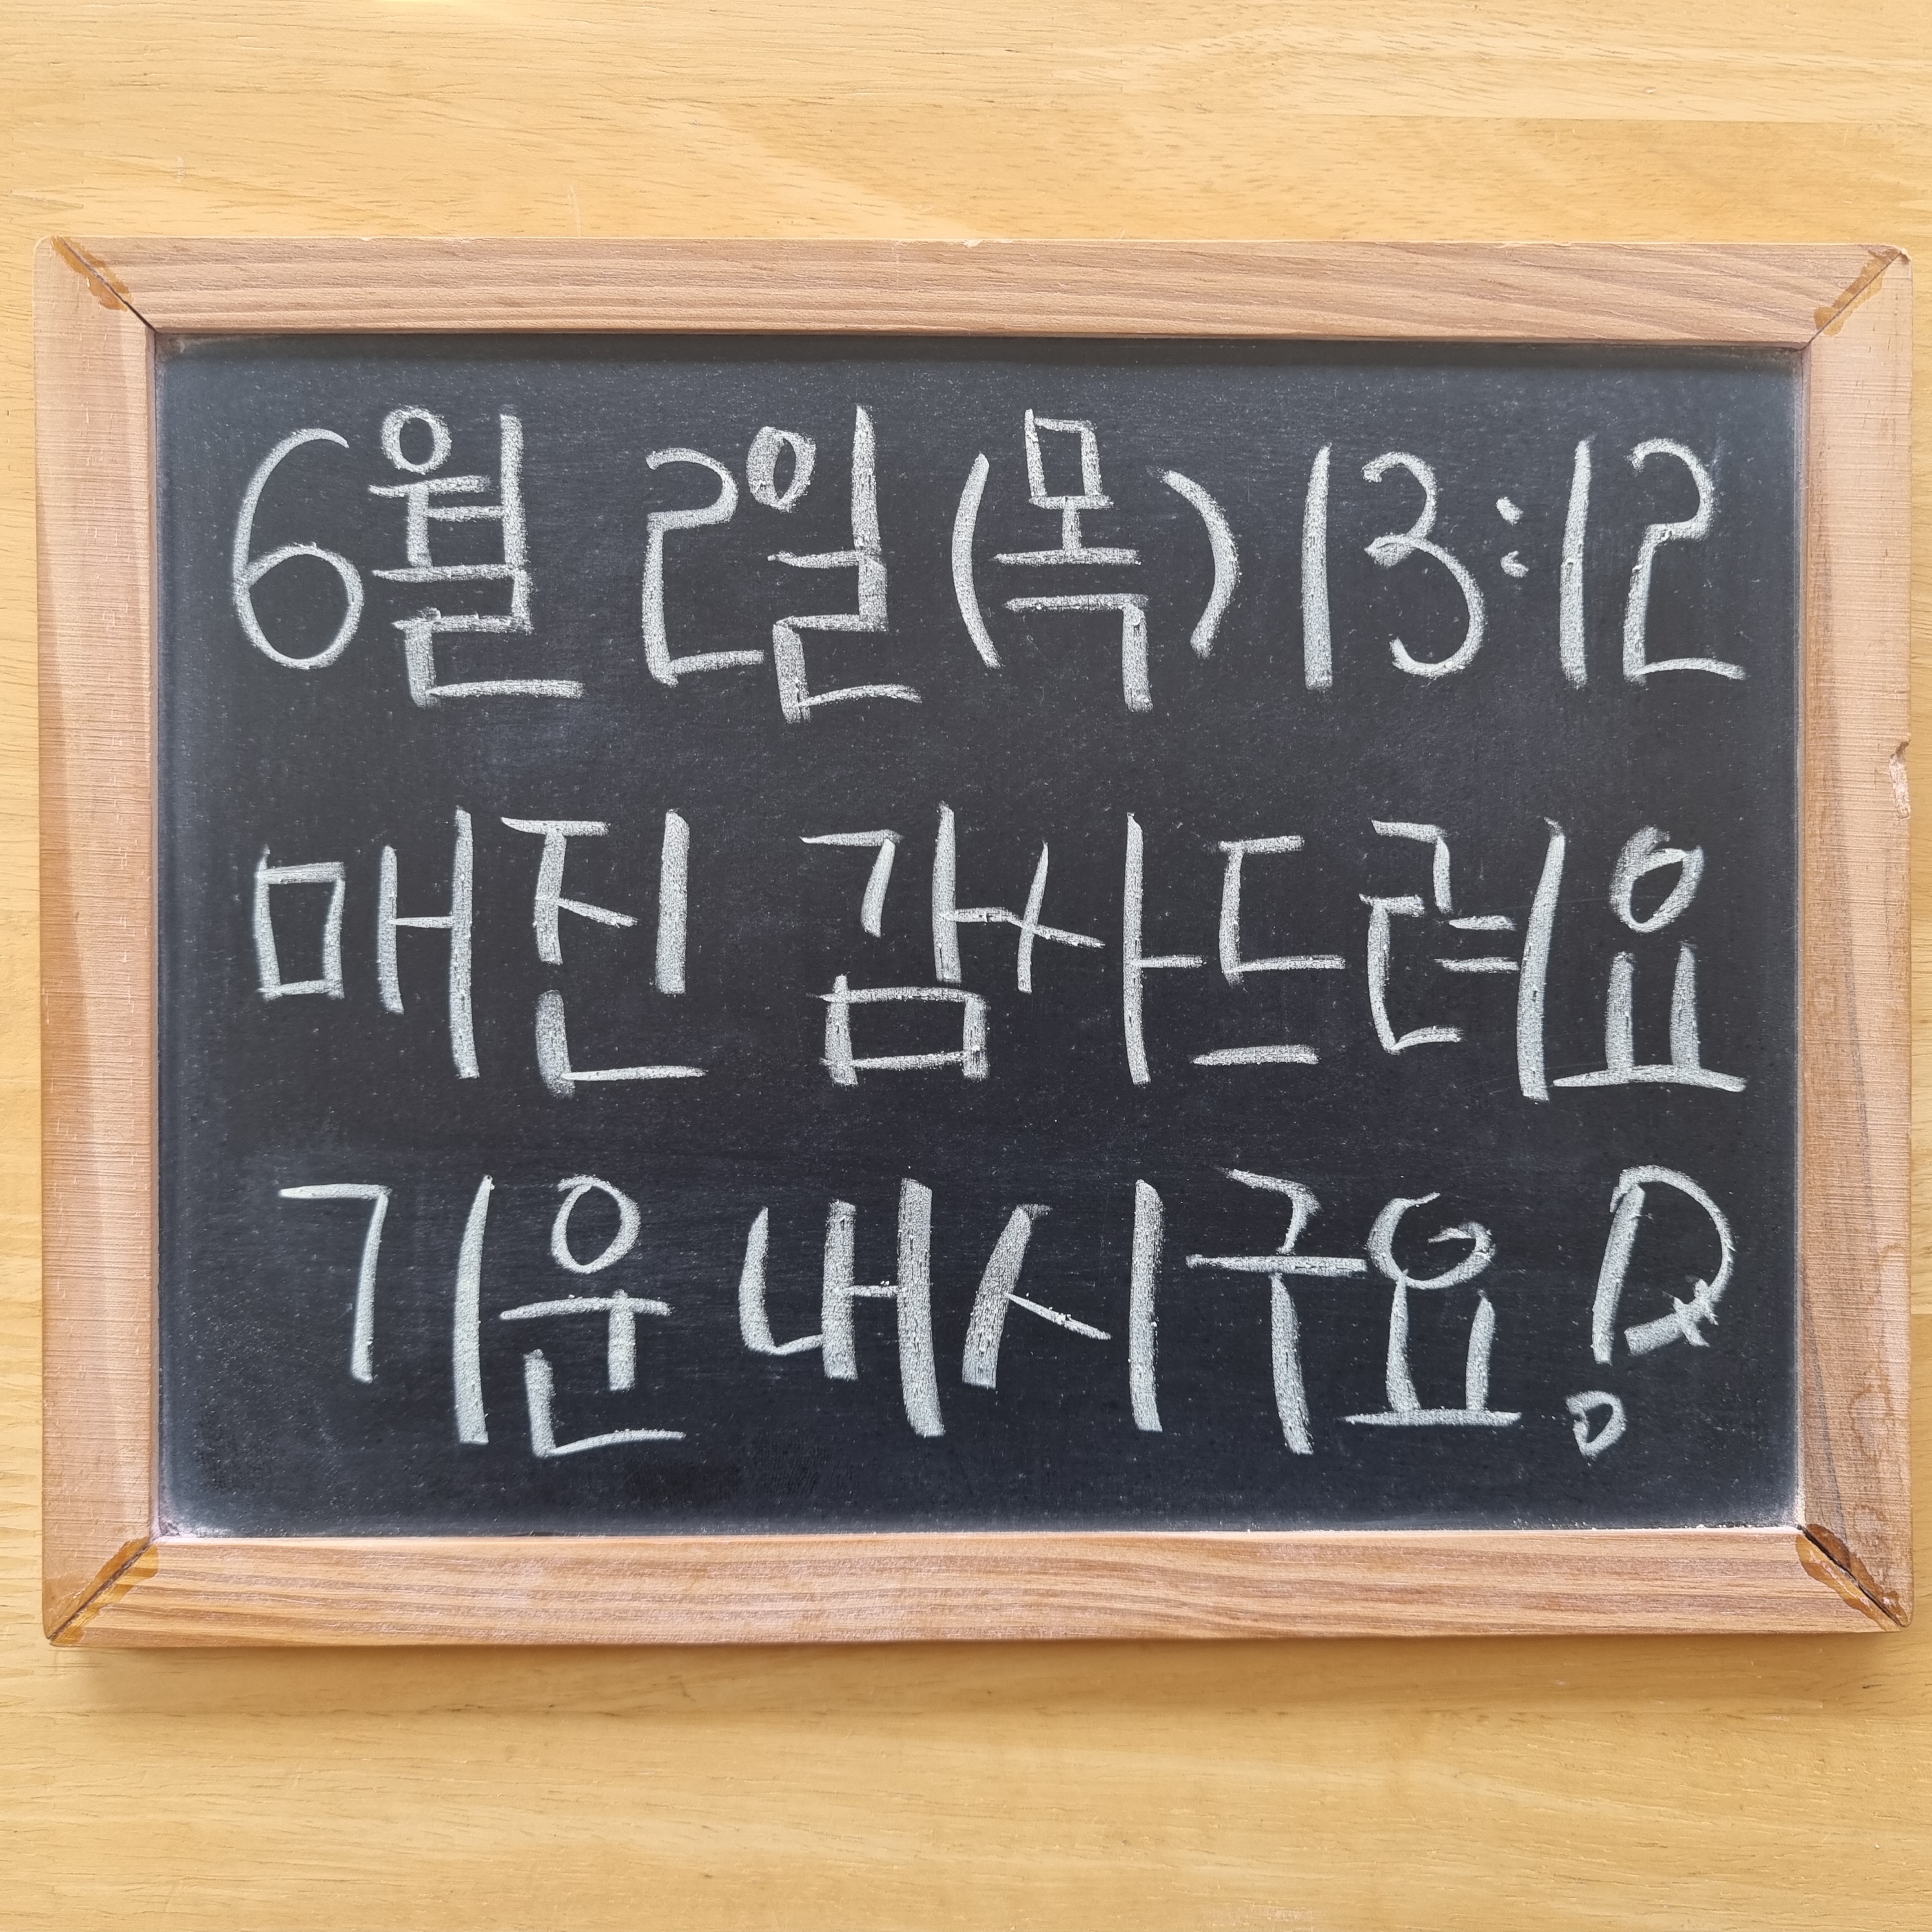 6월 2일(목) 13:12
매진 감사드려요
기운내시구요!